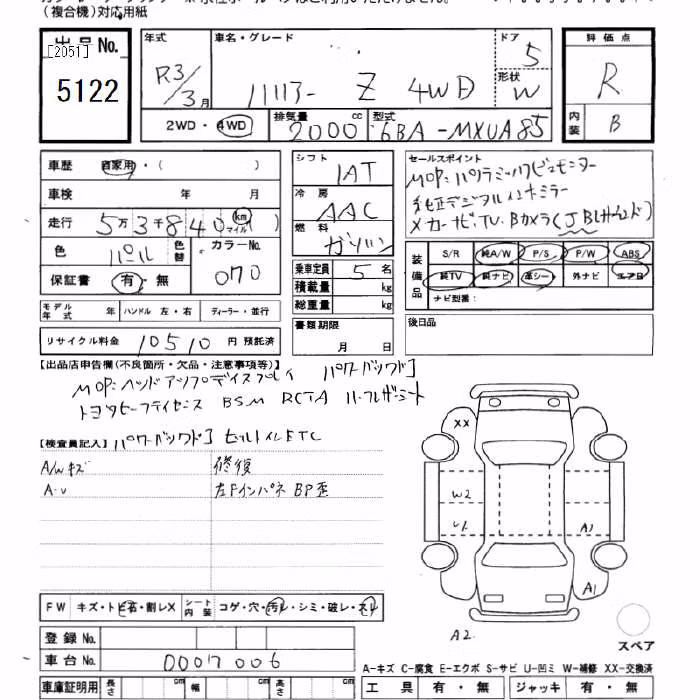 （複合機）対応用紙
出品No.
[2051]
5122
年式 R3/3月
車名・グレード ハリアー Z 4WD
ドア 5
形状 W
評価点 R
内装 B
2WD・4WD
排気量 2000 cc
型式 6BA-MXUA85
車歴 自家用・（ ）
シフト IAT
セールスポイント
MOP:パノラミックビューモニター
純正デジタルインナーミラー
メーカーナビ.TV.Bカメラ(JBLサウンド)
車検 年 月
冷房 AAC
走行 5万3千840 km マイル
燃料 ガソリン
色 パール
色替
カラーNo. 070
保証書 有・無
乗車定員 5名
積載量 kg
総重量 kg
装備品 S/R 純A/W P/S P/W ABS
純TV 純ナビ 革シー 外ナビ エアB
ナビ型番：
モデル年式 年 ハンドル 左・右 ディーラー・並行
リサイクル料金 10510 円 預託済
書類期限 月 日
後日品
【出品店申告欄(不良箇所・欠品・注意事項等)】 パワーバックドア
MOP:ヘッドアップディスプレイ
トヨタセーフティセンス BSM RCTA ハーフレザーシート
【検査員記入】パワーバックドア ビルトインETC
A/Wキズ
A・U
修復
左Fインパネ BP歪
XX
W2
U1
A1
A1
A2
FW キズ・トビ石・割レX シート内装 コゲ・穴・汚レ・シミ・破レ・スレ
登録No.
車台No. 0007006
スペア
車庫証明用 長さ cm 幅 cm 高さ cm
A-キズ C-腐食 E-エクボ S-サビ U-凹ミ W-補修 XX-交換済
工具 有・無 ジャッキ 有・無